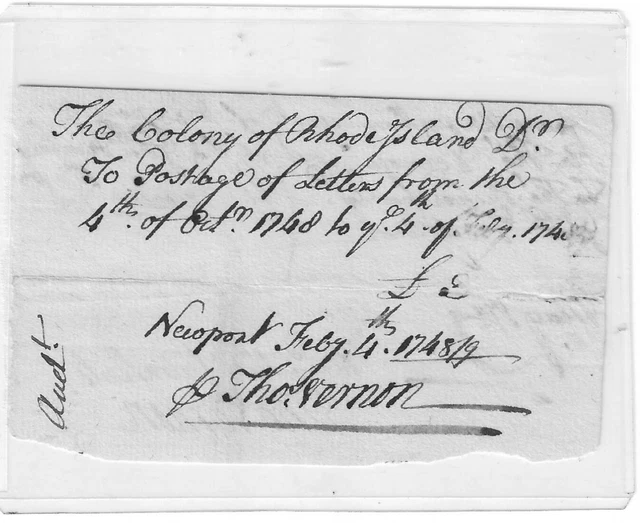 The Colony of Rhode Island Dr.
To Postage of Letters from the
4th. of Octr. 1748 to ye. 4th of Feby. 1748
£
Newport Feby. 4th. 1748/9
Tho. Vernon
Aud.t